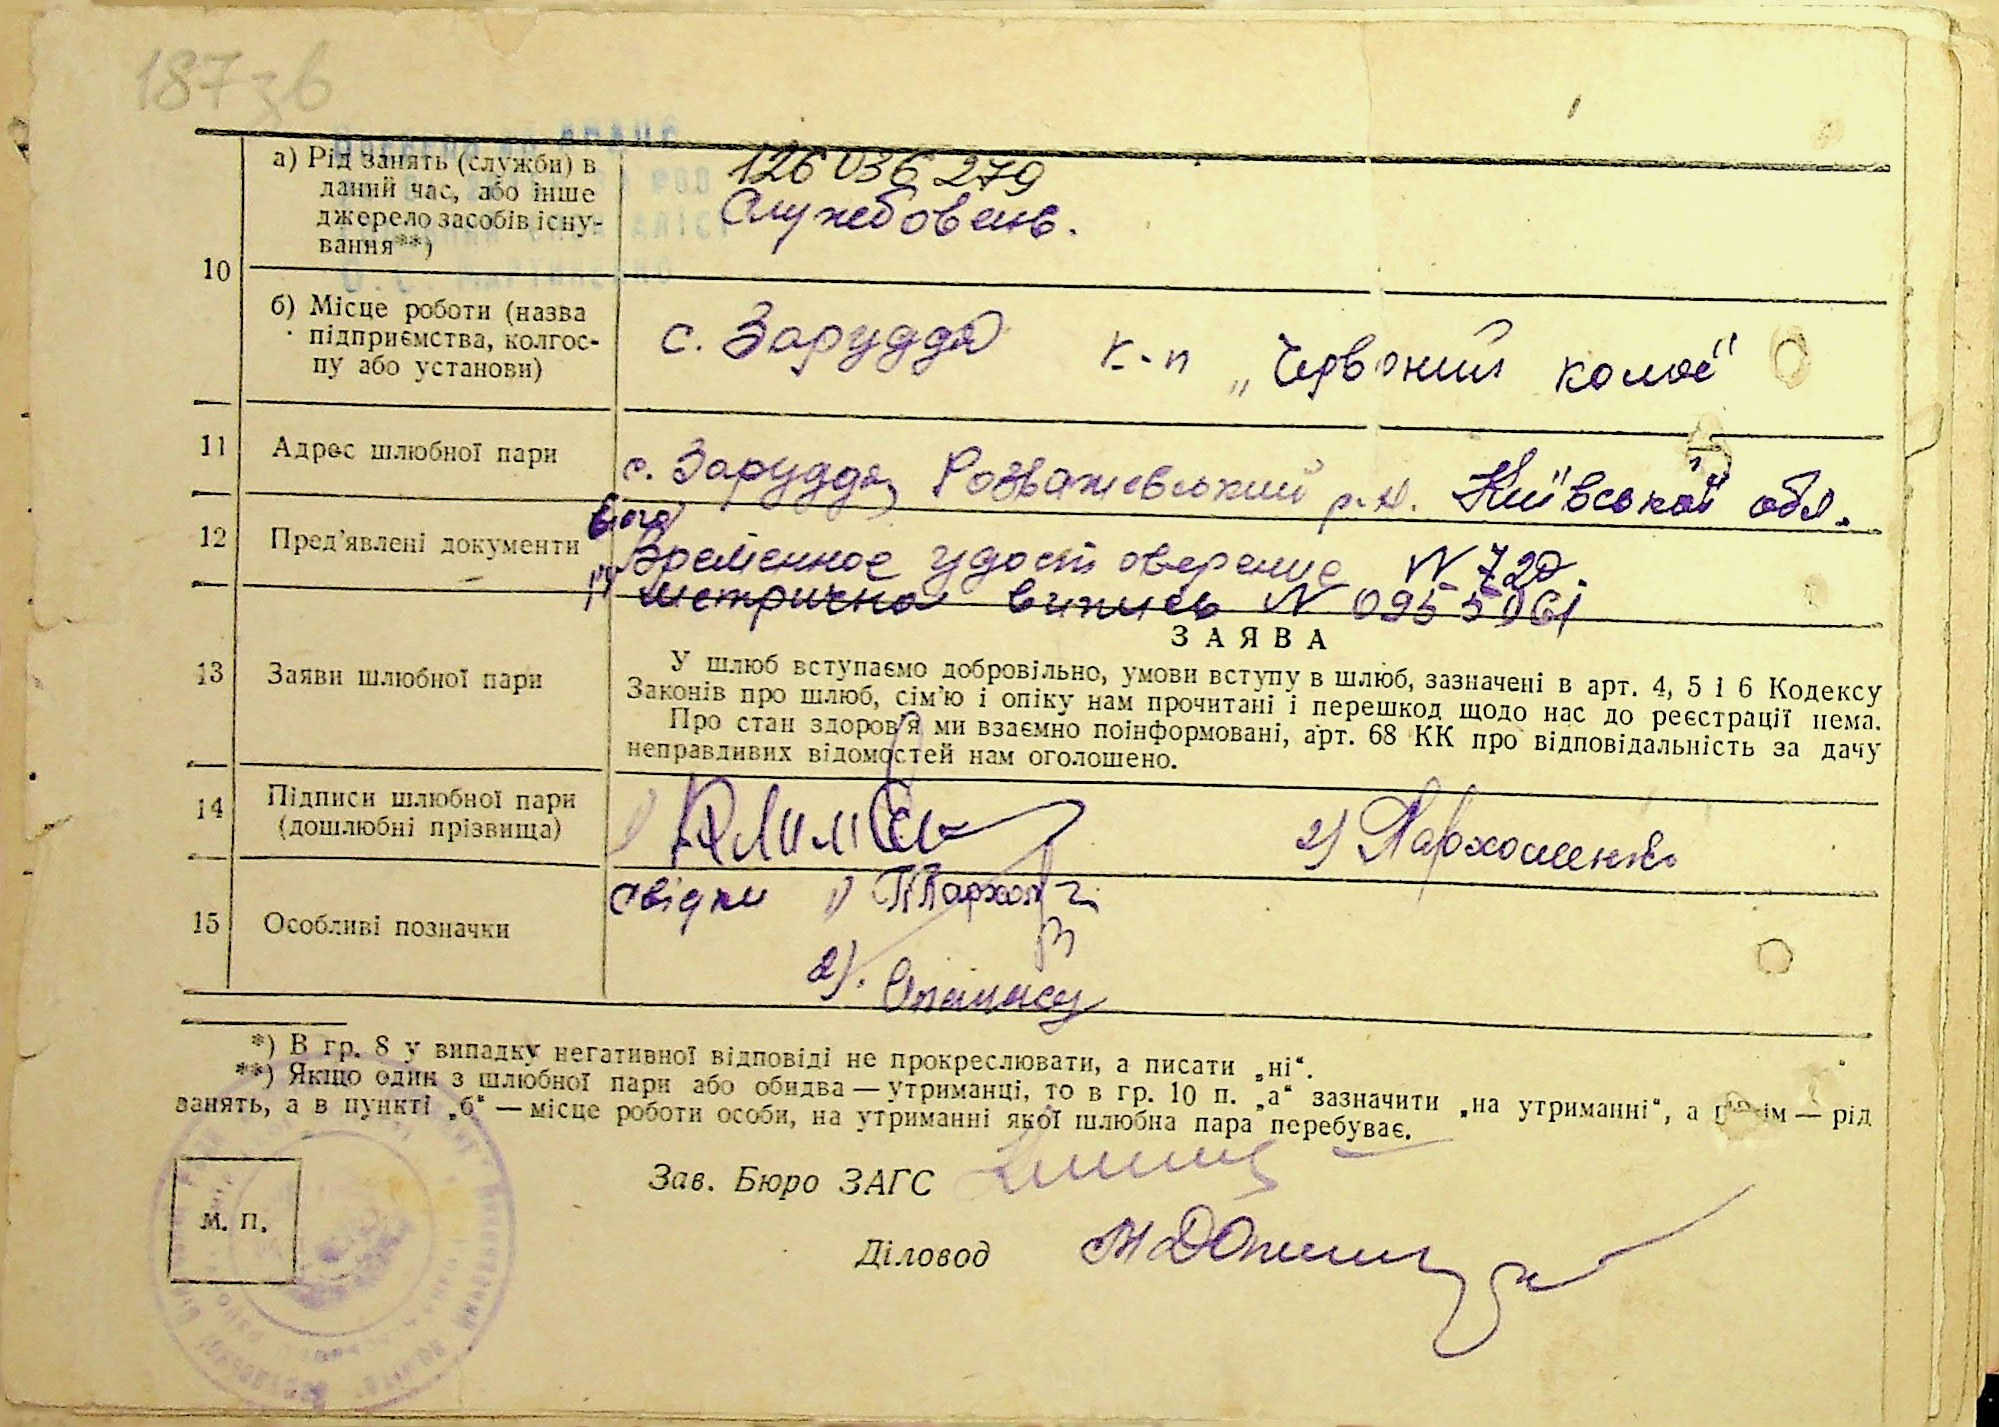 187зв
126 036 279
10
а) Рід занять (служби) в
даний час, або інше
джерело засобів існу-
вання**)
Службовець.
б) Місце роботи (назва
підприємства, колгос-
пу або установи)
с. Заруддя к-п „Червоний колос"
11 Адрес шлюбної пари
с. Заруддя, Розважевський р-н. Київської обл.
12 Пред'явлені документи
Временное удостоверение N 720
метрична випись N 0955061
13 Заяви шлюбної пари
ЗАЯВА
У шлюб вступаємо добровільно, умови вступу в шлюб, зазначені в арт. 4, 5 і 6 Кодексу
Законів про шлюб, сім'ю і опіку нам прочитані і перешкод щодо нас до реєстрації нема.
Про стан здоров'я ми взаємно поінформовані, арт. 68 КК про відповідальність за дачу
неправдивих відомостей нам оголошено.
14 Підписи шлюбної пари
(дошлюбні прізвища)
2) Пархоменко
15 Особливі позначки
свідки 1)
2).
*) В гр. 8 у випадку негативної відповіді не прокреслювати, а писати „ні“.
**) Якщо один з шлюбної пари або обидва — утриманці, то в гр. 10 п. „а“ зазначити „на утриманні“, а — рід
занять, а в пункті „б“ — місце роботи особи, на утриманні якої шлюбна пара перебуває.
Зав. Бюро ЗАГС
М. П.
Діловод